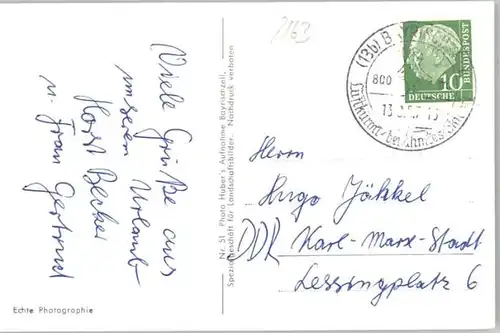 Viele Grüße aus
unserem Urlaub
Horst Becker
u. Frau Gertrud
Echte Photographie
Nr. 51 Photo Huber's Aufnahme Bayrischzell,
Spezialgeschäft für Landschaftsbilder. Nachdruck verboten
2163
(13b) B
800
DEUTSCHE
BUNDESPOST
10
Herrn
Hugo Jäkkel
DDR Karl-Marx-Stadt
Lessingplatz 6